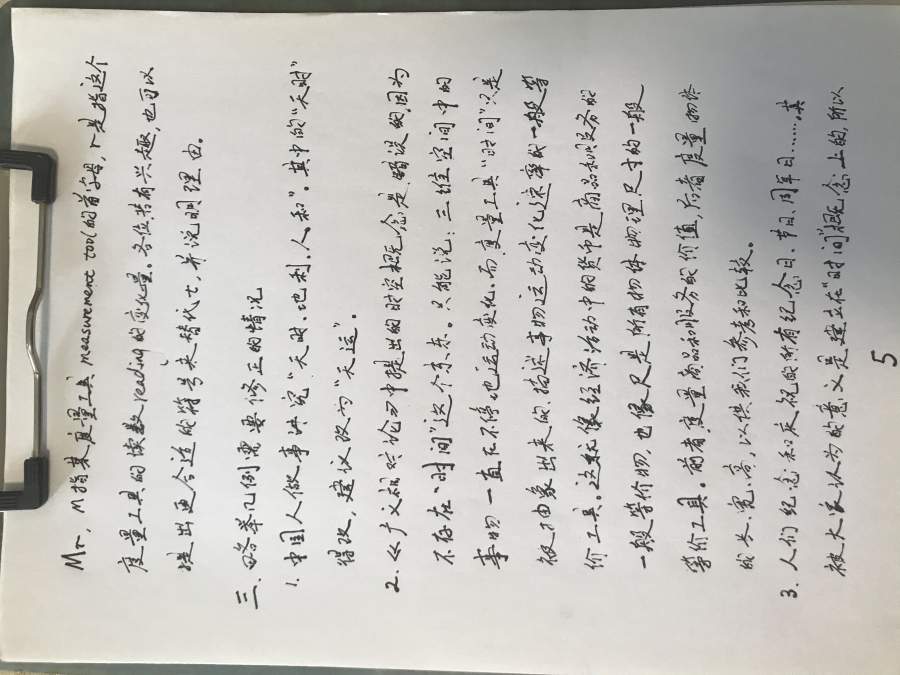 Mr, M指某度量工具 measurement tool的首字母, r是指这个
度量工具的读数reading的变化量。各位若有兴趣,也可以
提出更合适的符号来替代t,并说明理由。
三.略举几例需要修正的情况
1. 中国人做事讲究“天时、地利、人和”。其中的“天时”
得改,建议改为“天运”。
2.《广义相对论》中提出的时空概念是错误的,因为
不存在“时间”这个东东。只能说:三维空间中的
事物一直在不停地运动变化。而度量工具“时间”只是
被抽象出来的,描述事物运动变化速率的一般等
价工具。这就像经济活动中的货币是商品和服务的
一般等价物,也像尺是所有物体物理尺寸的一般
等价工具。前者度量商品和服务的价值,后者度量物体
的长、宽、高,以供我们参考和比较。
3. 人们纪念和庆祝的所有纪念日、节日、周年日……,其
被大家认为的意义是建立在“时间”概念上的,所以
5